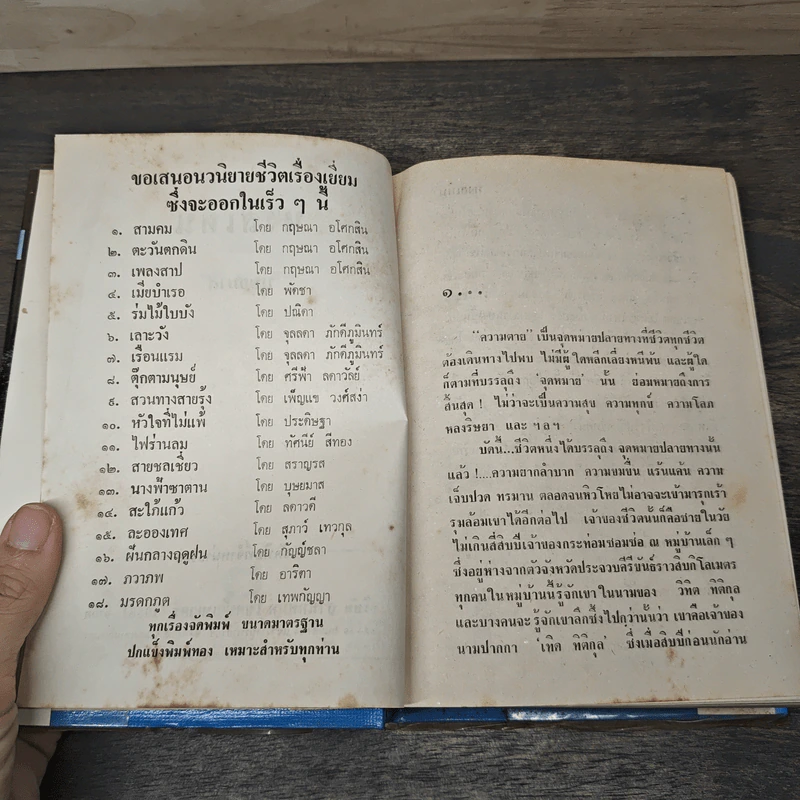 ขอเสนอนวนิยายชีวิตเรื่องเยี่ยม
ซึ่งจะออกในเร็ว ๆ นี้
๑. สามคม โดย กฤษณา อโศกสิน
๒. ตะวันตกดิน โดย กฤษณา อโศกสิน
๓. เพลงสาป โดย กฤษณา อโศกสิน
๔. เมียบำเรอ โดย พัดชา
๕. ร่มไม้ใบบัง โดย ปณิตา
๖. เลาะวัง โดย จุลลดา ภักดีภูมินทร์
๗. เรือนแรม โดย จุลลดา ภักดีภูมินทร์
๘. ตุ๊กตามนุษย์ โดย ศรีฟ้า ลดาวัลย์
๙. สวนทางสายรุ้ง โดย เพ็ญแข วงศ์สง่า
๑๐. หัวใจที่ไม่แพ้ โดย ประดิษฐา
๑๑. ไฟร่านลม โดย ทัศนีย์ สีทอง
๑๒. สายชลเชี่ยว โดย สราญรส
๑๓. นางฟ้าซาตาน โดย บุษยมาส
๑๔. สะใภ้แก้ว โดย ลดาวดี
๑๕. ละอองเทศ โดย สุภาว์ เทวกุล
๑๖. ฝนกลางฤดูฝน โดย กัญญ์ชลา
๑๗. ภวาภพ โดย อาริตา
๑๘. มรดกภูต โดย เทพกัญญา
ทุกเรื่องจัดพิมพ์ ขนาดมาตรฐาน
ปกแข็งพิมพ์ทอง เหมาะสำหรับทุกท่าน
๑...
“ความตาย” เป็นจุดหมายปลายทางที่ชีวิตทุกชีวิต
ต้องเดินทางไปพบ ไม่มีผู้ใดหลีกเลี่ยงหนีพ้น และผู้ใด
ก็ตามที่บรรลุถึง ‘จุดหมาย’ นั้น ย่อมหมายถึงการ
สิ้นสุด ! ไม่ว่าจะเป็นความสุข ความทุกข์ ความโลภ
หลงริษยา และ ฯลฯ
บัดนี้...ชีวิตหนึ่งได้บรรลุถึง จุดหมายปลายทางนั้น
แล้ว !....ความยากลำบาก ความขมขื่น แร้นแค้น ความ
เจ็บปวด ทรมาน ตลอดจนหิวโหยไม่อาจจะเข้ามารุกเร้า
รุมล้อมเขาได้อีกต่อไป เจ้าของชีวิตนั้นก็คือชายในวัย
ไม่เกินสี่สิบปีเจ้าของกระท่อมซอมซ่อ ณ หมู่บ้านเล็ก ๆ
ซึ่งอยู่ห่างจากตัวจังหวัดประจวบคีรีขันธ์ราวสิบกิโลเมตร
ทุกคนในหมู่บ้านนี้รู้จักเขาในนามของ วิทิต ทิติกุล
และบางคนจะรู้จักเขาลึกซึ้งไปกว่านั้นว่า เขาคือเจ้าของ
นามปากกา ‘เทิด ทิติกุล’ ซึ่งเมื่อสิบปีก่อนนักอ่าน